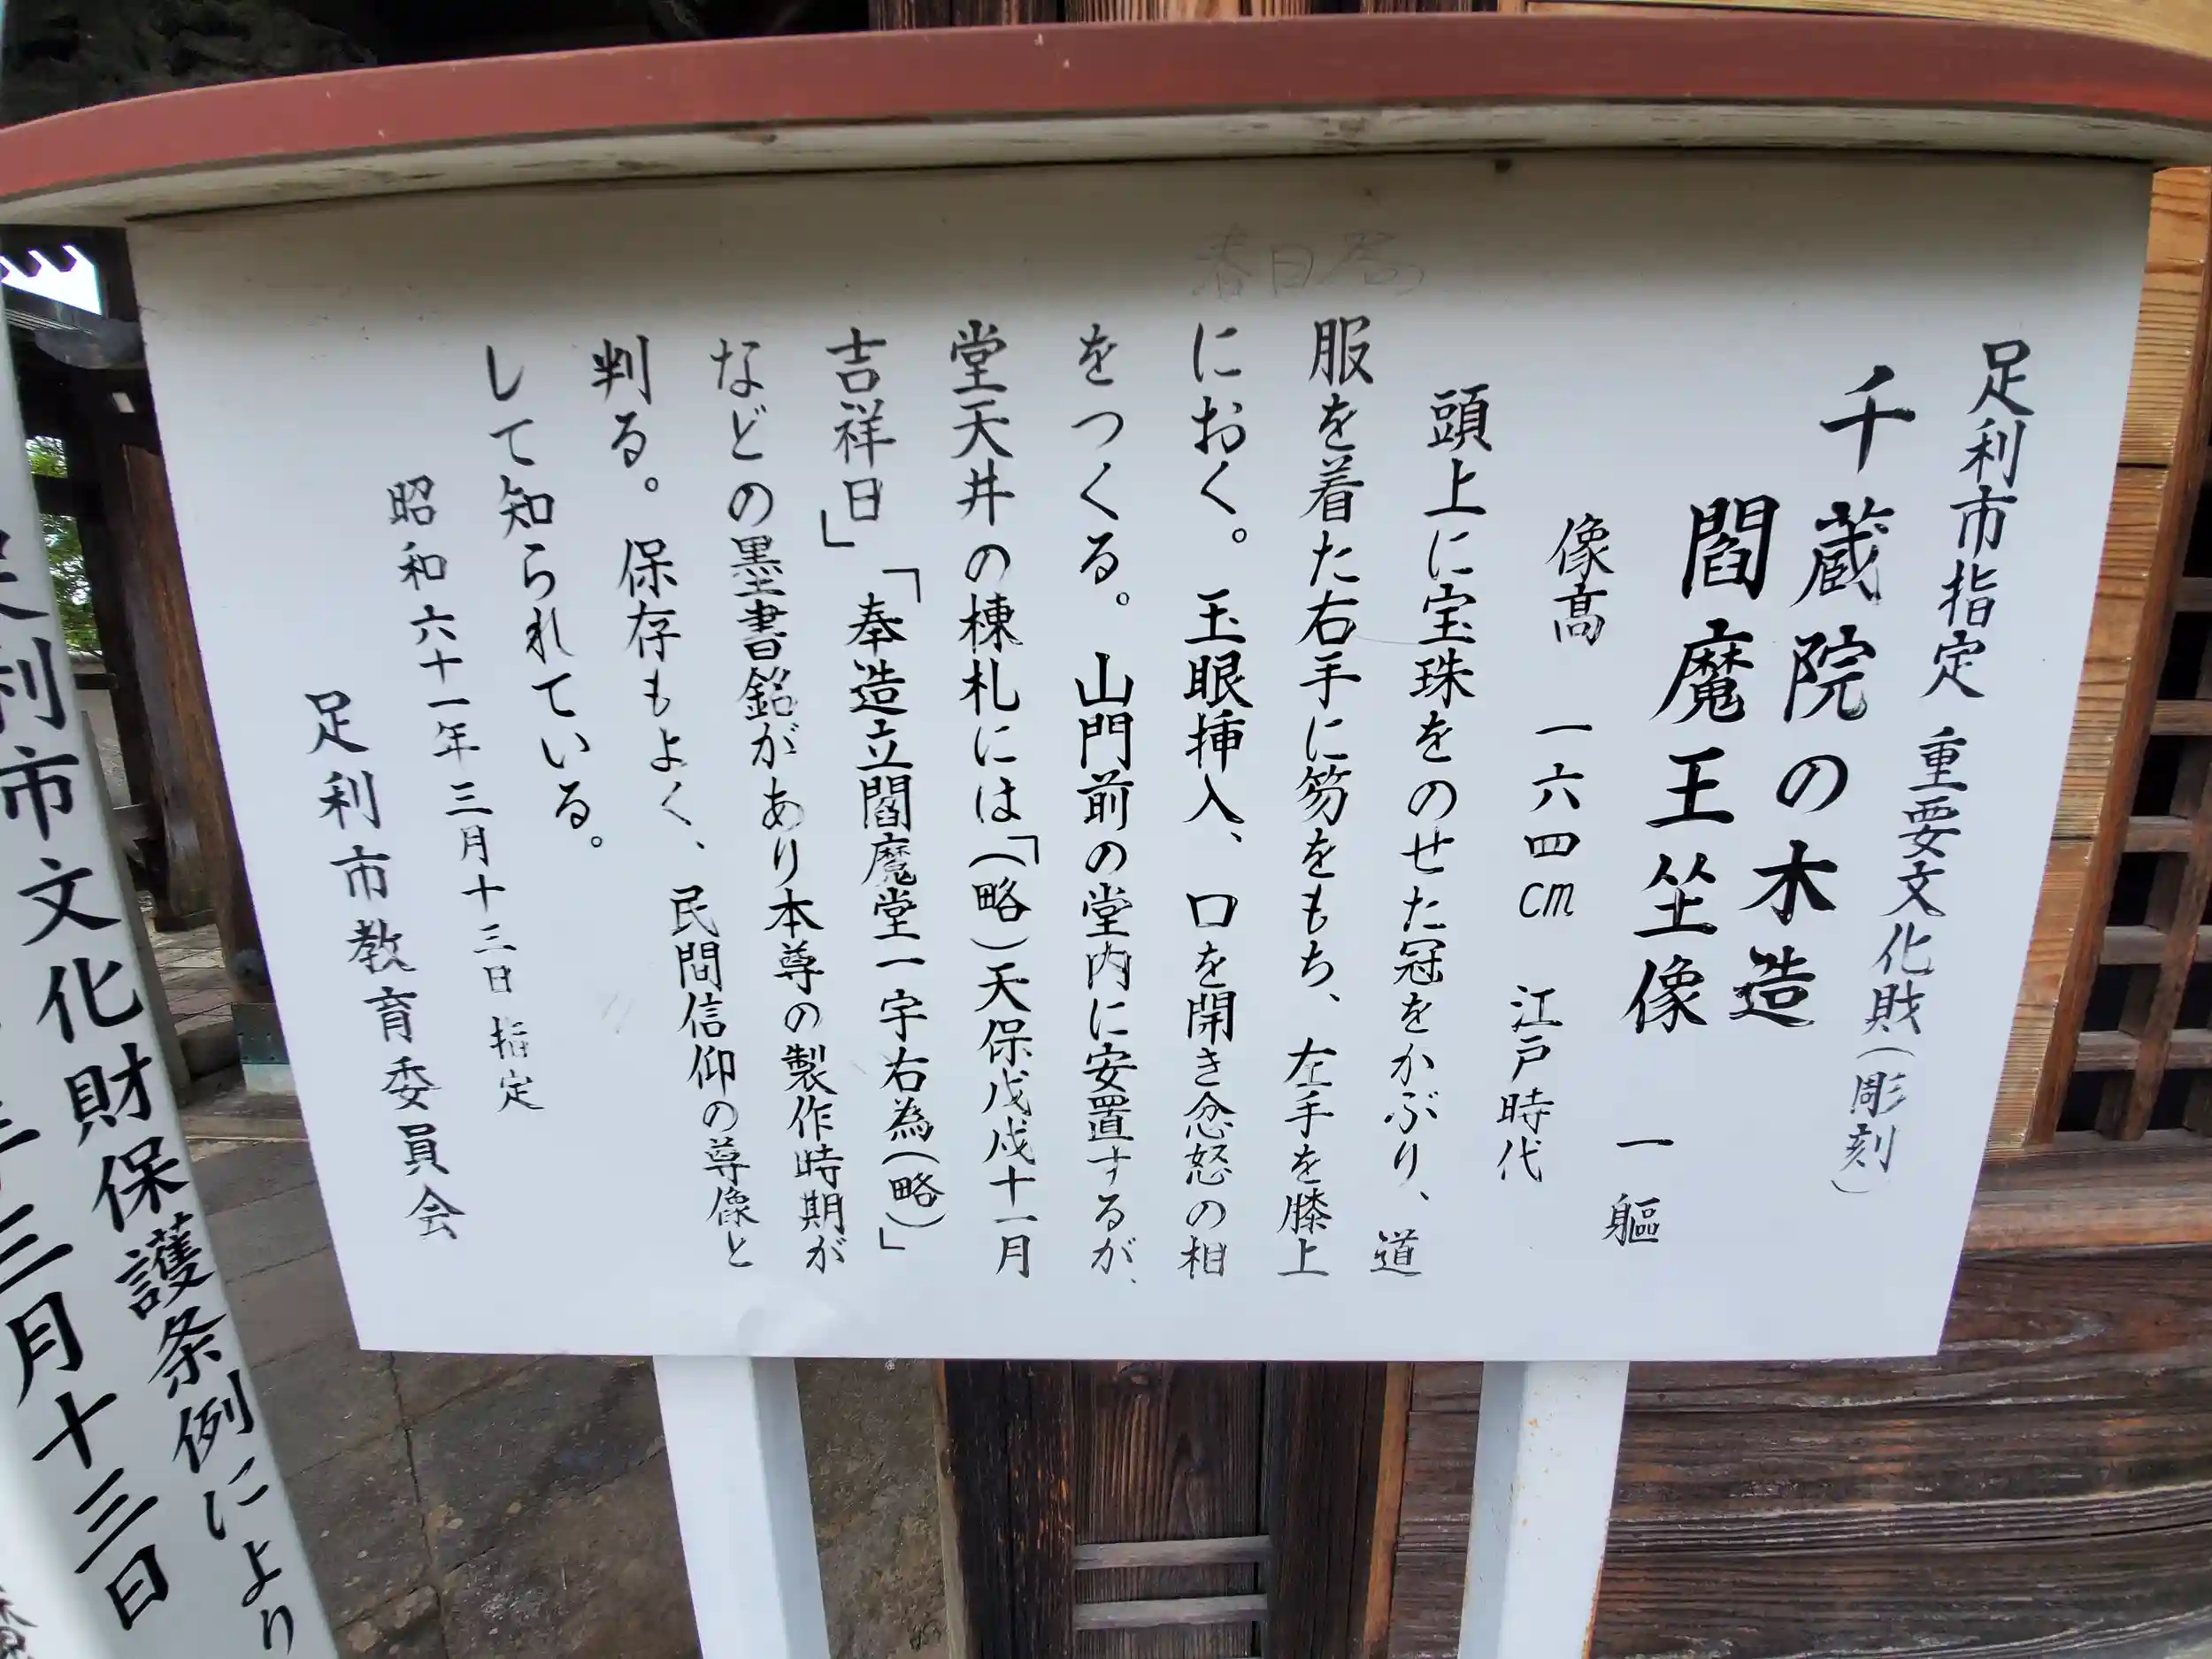 足利市指定 重要文化財(彫刻)
千蔵院の木造
閻魔王坐像 一軀
像高 一六四cm 江戸時代
頭上に宝珠をのせた冠をかぶり、道
服を着た右手に笏をもち、左手を膝上
におく。玉眼挿入、口を開き忿怒の相
をつくる。山門前の堂内に安置するが、
堂天井の棟札には「(略)天保戊戌十一月
吉祥日」「奉造立閻魔堂一宇右為(略)」
などの墨書銘があり本尊の製作時期が
判る。保存もよく、民間信仰の尊像と
して知られている。
昭和六十一年三月十三日指定
足利市教育委員会
足利市文化財保護条例により
三月十三日